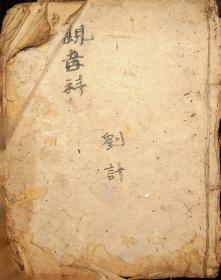 觀音科
劉計